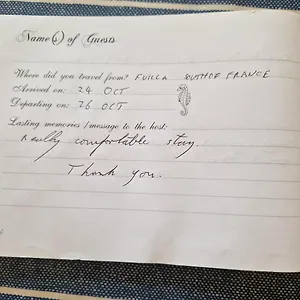 Name(s) of Guests
Where did you travel from? FUILLA SOUTH OF FRANCE
Arrived on: 24 OCT
Departing on: 26 OCT
Lasting memories / message to the host:
Really comfortable stay.
Thank you.